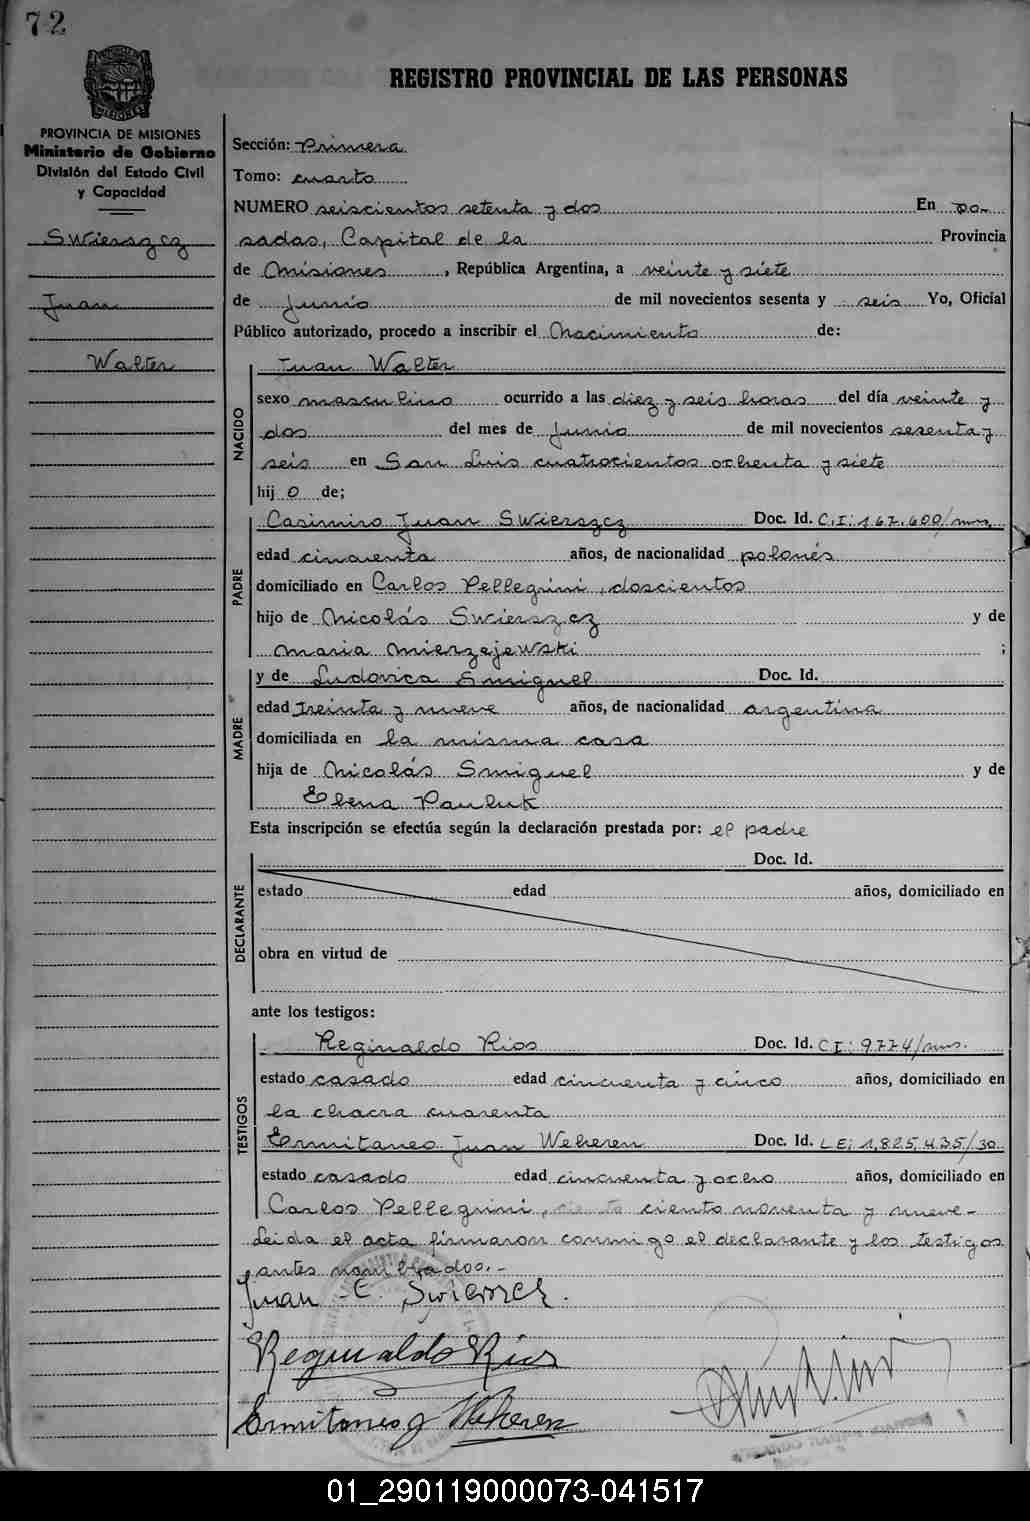 72
REGISTRO PROVINCIAL DE LAS PERSONAS
PROVINCIA DE MISIONES
Ministerio de Gobierno
División del Estado Civil
y Capacidad
Swierszcz
Juan
Walter
Sección: Primera
Tomo: cuarto
NUMERO seiscientos setenta y dos En Po-
sadas, Capital de la Provincia
de Misiones, República Argentina, a veinte y siete
de Junio de mil novecientos sesenta y seis Yo, Oficial
Público autorizado, procedo a inscribir el Nacimiento de:
NACIDO
Juan Walter
sexo masculino ocurrido a las diez y seis horas del día veinte y
dos del mes de Junio de mil novecientos sesenta y
seis en San Luis cuatrocientos ochenta y siete
hij o de;
PADRE
Casimiro Juan Swierszcz Doc. Id. C.I: 167.600/mns
edad cincuenta años, de nacionalidad polonés
domiciliado en Carlos Pellegrini, doscientos
hijo de Nicolás Swierszcz y de
Maria Mierzejewski ;
MADRE
y de Ludovica Smiguel Doc. Id.
edad treinta y nueve años, de nacionalidad argentina
domiciliada en la misma casa
hija de Nicolás Smiguel y de
Elena Pauluk
Esta inscripción se efectúa según la declaración prestada por: el padre
DECLARANTE
Doc. Id.
estado edad años, domiciliado en
obra en virtud de
ante los testigos:
TESTIGOS
Reginaldo Rios Doc. Id. CI: 9774/mns.
estado casado edad cincuenta y cinco años, domiciliado en
la chacra cuarenta
Ermitaneo Juan Weheren Doc. Id. LE; 1,825,435/30
estado casado edad cincuenta y ocho años, domiciliado en
Carlos Pellegrini, ciento noventa y nueve-
Leida el acta firmaron conmigo el declarante y los testigos
antes nombrados.-
Juan C. Swierszcz.
Reginaldo Rios
Ermitaneo J Weheren
01_290119000073-041517